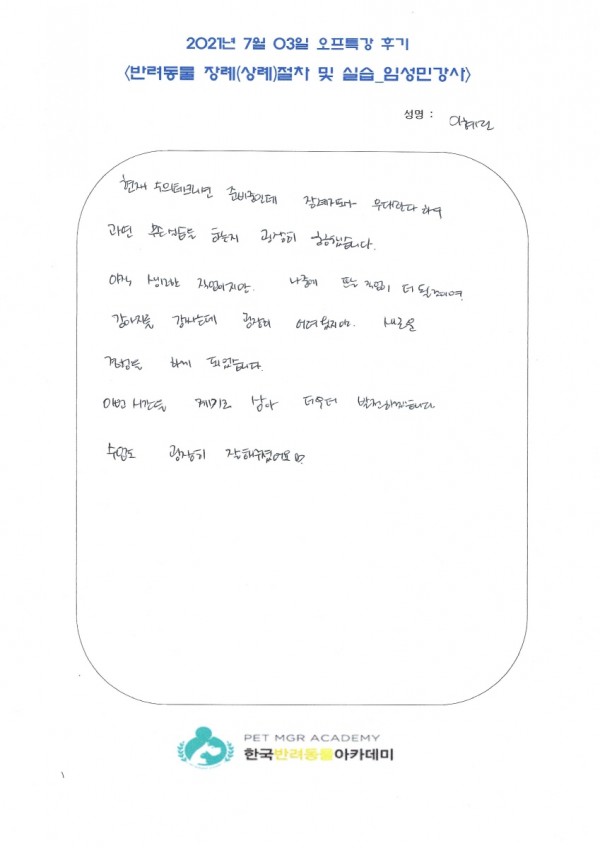 2021년 7월 03일 오프특강 후기
<반려동물 장례(상례)절차 및 실습_임성민강사>
성명 : 이혜린
현재 수의테크니션 준비중인데 장례지도사 우대한다 하여
과연 무슨 업무를 하는지 굉장히 궁금했습니다.
아직 생소한 직업이지만. 나중에 뜨는 직업이 더 될것이며
강아지를 감싸는데 굉장히 어려웠지만. 새로운
경험을 하게 되었습니다.
이번 시간을 계기로 삼아 더욱더 발전하겠습니다
수업도 굉장히 잘해주셨어요
PET MGR ACADEMY
한국반려동물아카데미